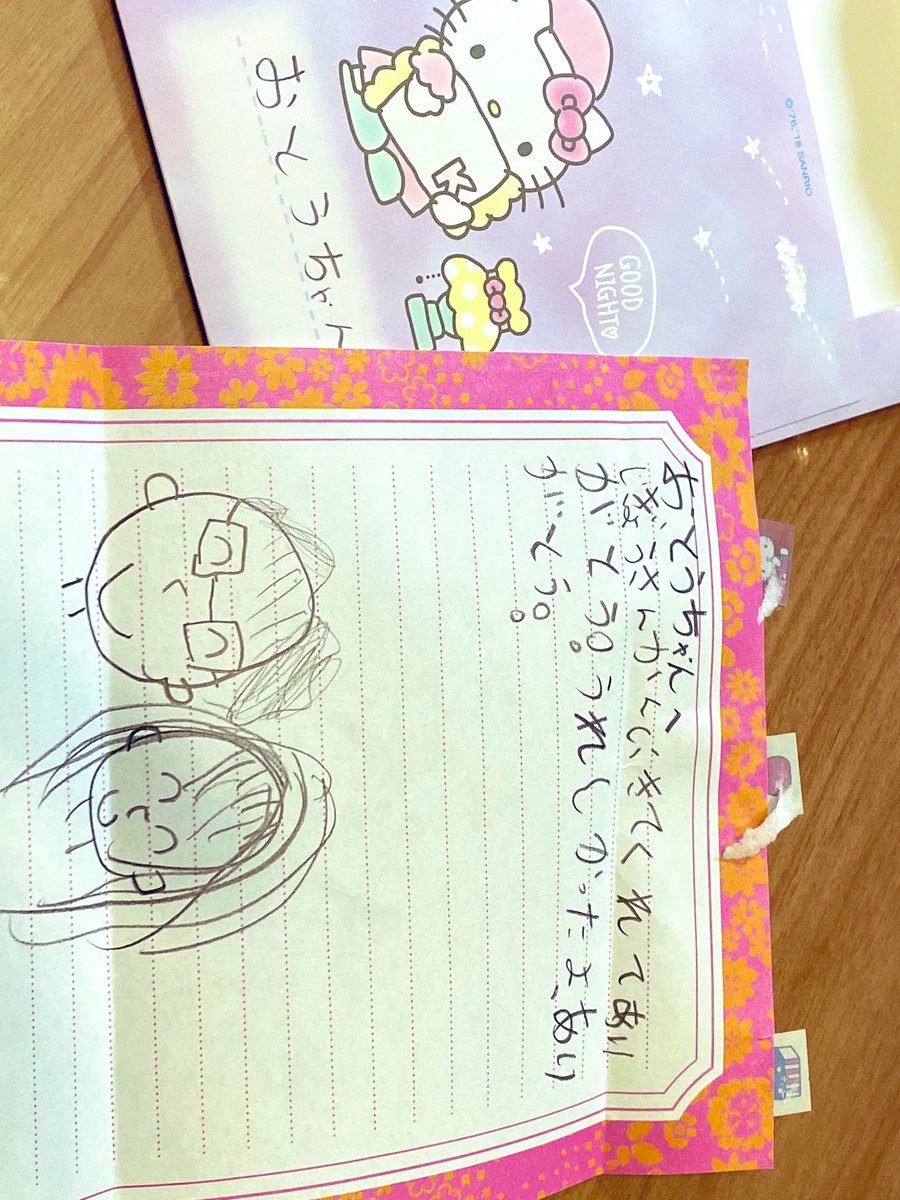 おとうちゃん
GOOD
NIGHT♡
© '76, '18 SANRIO
おとうちゃんへ
じぎょうさんかんにきてくれてあり
がとう。うれしかったよ、あり
がとう。